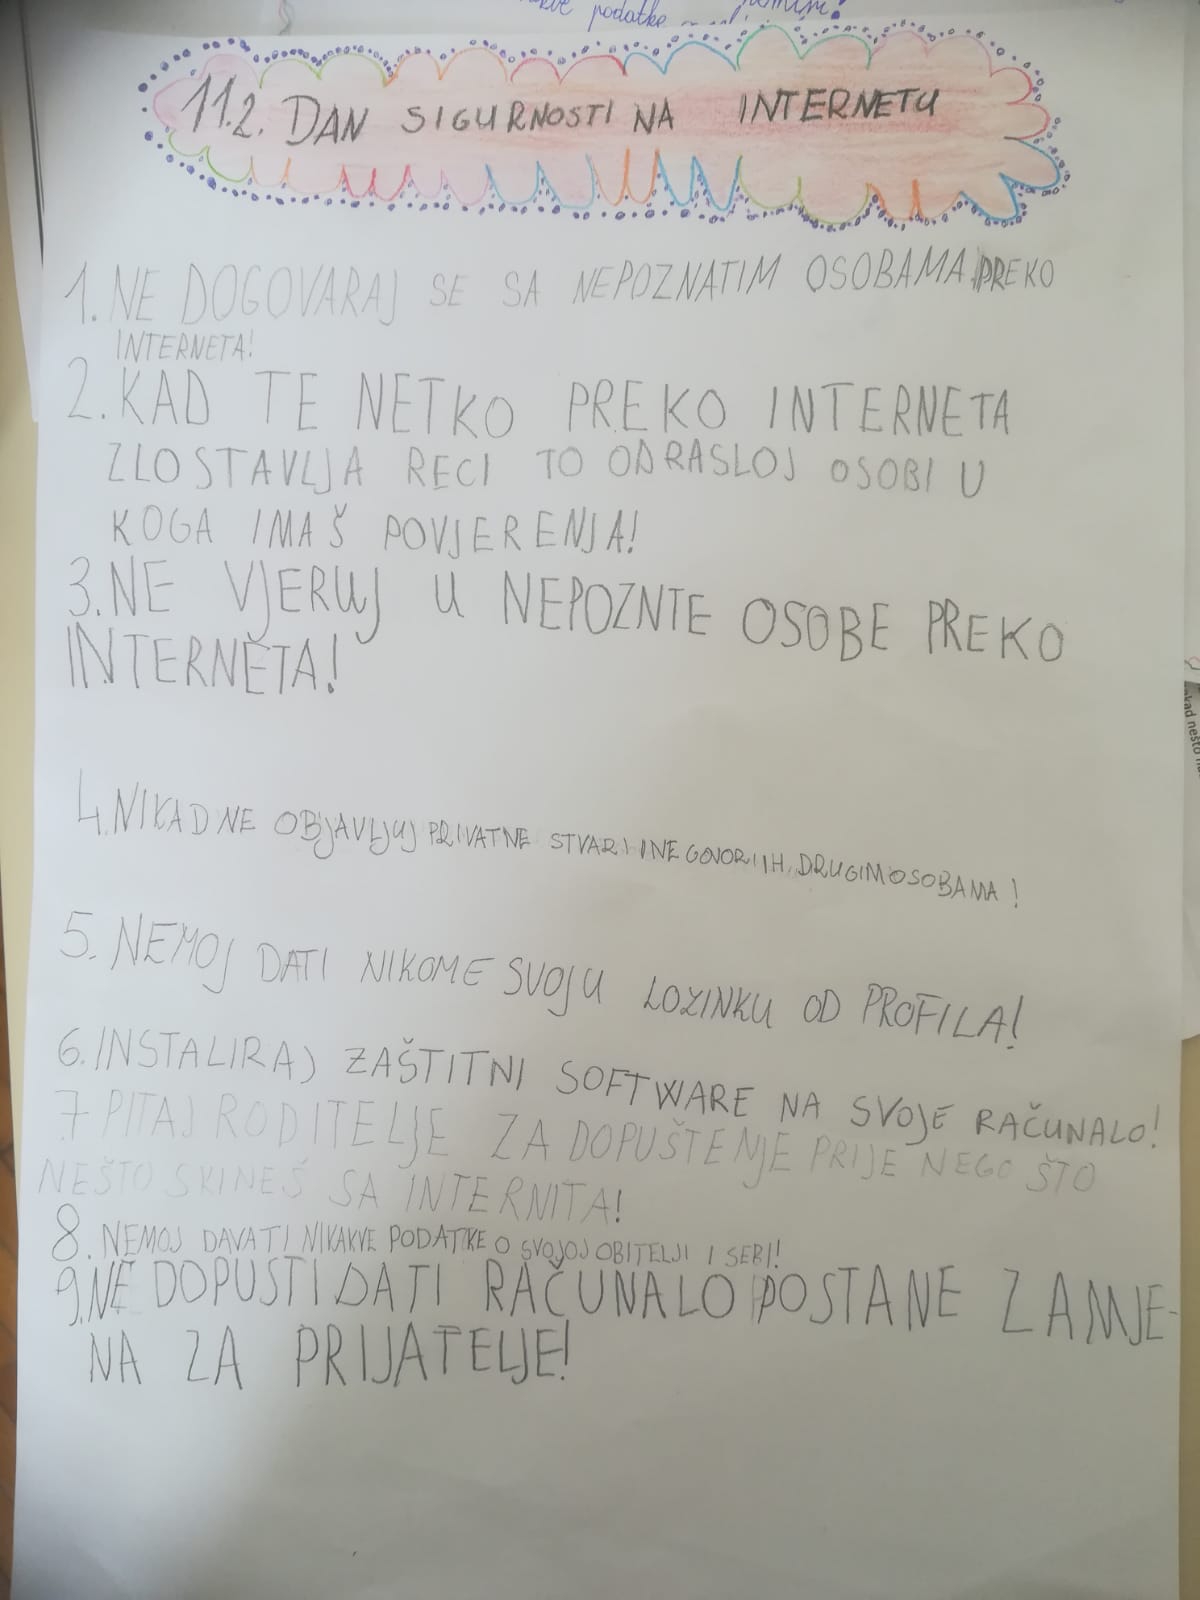 podatke
11.2. DAN SIGURNOSTI NA INTERNETU
1. NE DOGOVARAJ SE SA NEPOZNATIM OSOBAMA PREKO
INTERNETA!
2. KAD TE NETKO PREKO INTERNETA
ZLOSTAVLJA RECI TO ODRASLOJ OSOBI U
KOGA IMAŠ POVJERENJA!
3. NE VJERUJ U NEPOZNTE OSOBE PREKO
INTERNETA!
4. NIKAD NE OBJAVLJUJ PRIVATNE STVARI I NE GOVORI IH DRUGIM OSOBAMA!
5. NEMOJ DATI NIKOME SVOJU LOZINKU OD PROFILA!
6. INSTALIRAJ ZAŠTITNI SOFTWARE NA SVOJE RAČUNALO!
7 PITAJ RODITELJE ZA DOPUŠTENJE PRIJE NEGO ŠTO
NEŠTO SKINEŠ SA INTERNITA!
8. NEMOJ DAVATI NIKAKVE PODATKE O SVOJOJ OBITELJI I SEBI!
9. NE DOPUSTI DATI RAČUNALO POSTANE ZAMJE-
NA ZA PRIJATELJE!
kad nešto